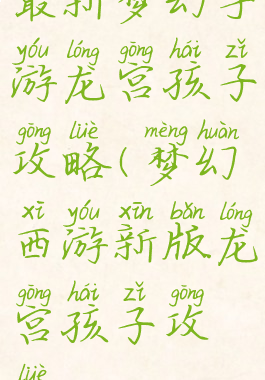 最新梦幻手
yóu lóng gōng hái zǐ
游龙宫孩子
gōng lüè mèng huàn
攻略(梦幻
xī yóu xīn bǎn lóng
西游新版龙
gōng hái zǐ gōng
宫孩子攻
lüè